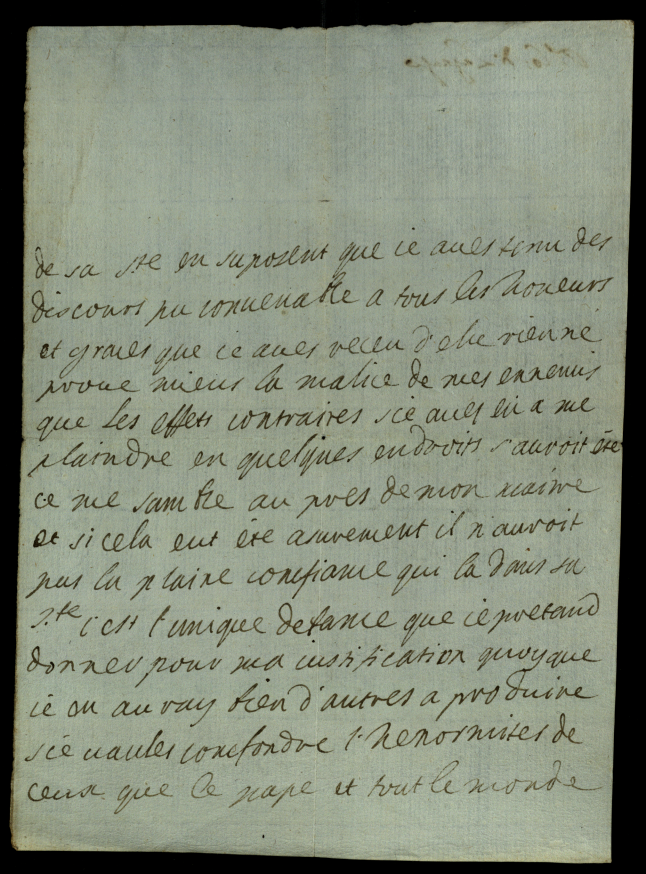 de sa ste en suposent que ie aves tenu des
discours pu convenable a tous les honeurs
et graces que ie aves receu d'elle rien ne
prove mieus la malice de mes ennemis
que les effets contraires si ie aves eu a me
plaindre en quelques endroits s'auroit éte
ce me samble au pres de mon maitre
et si cela eut éte asurement il n'auroit
pas la plaine comfiance qui la dans sa
ste c'est l'unique defance que ie pretand
donner pour ma iustification quoyque
ie en auray bien d'autres a produire
si ie vaules comfondre l'henormites de
ceux que le pape et tout le monde